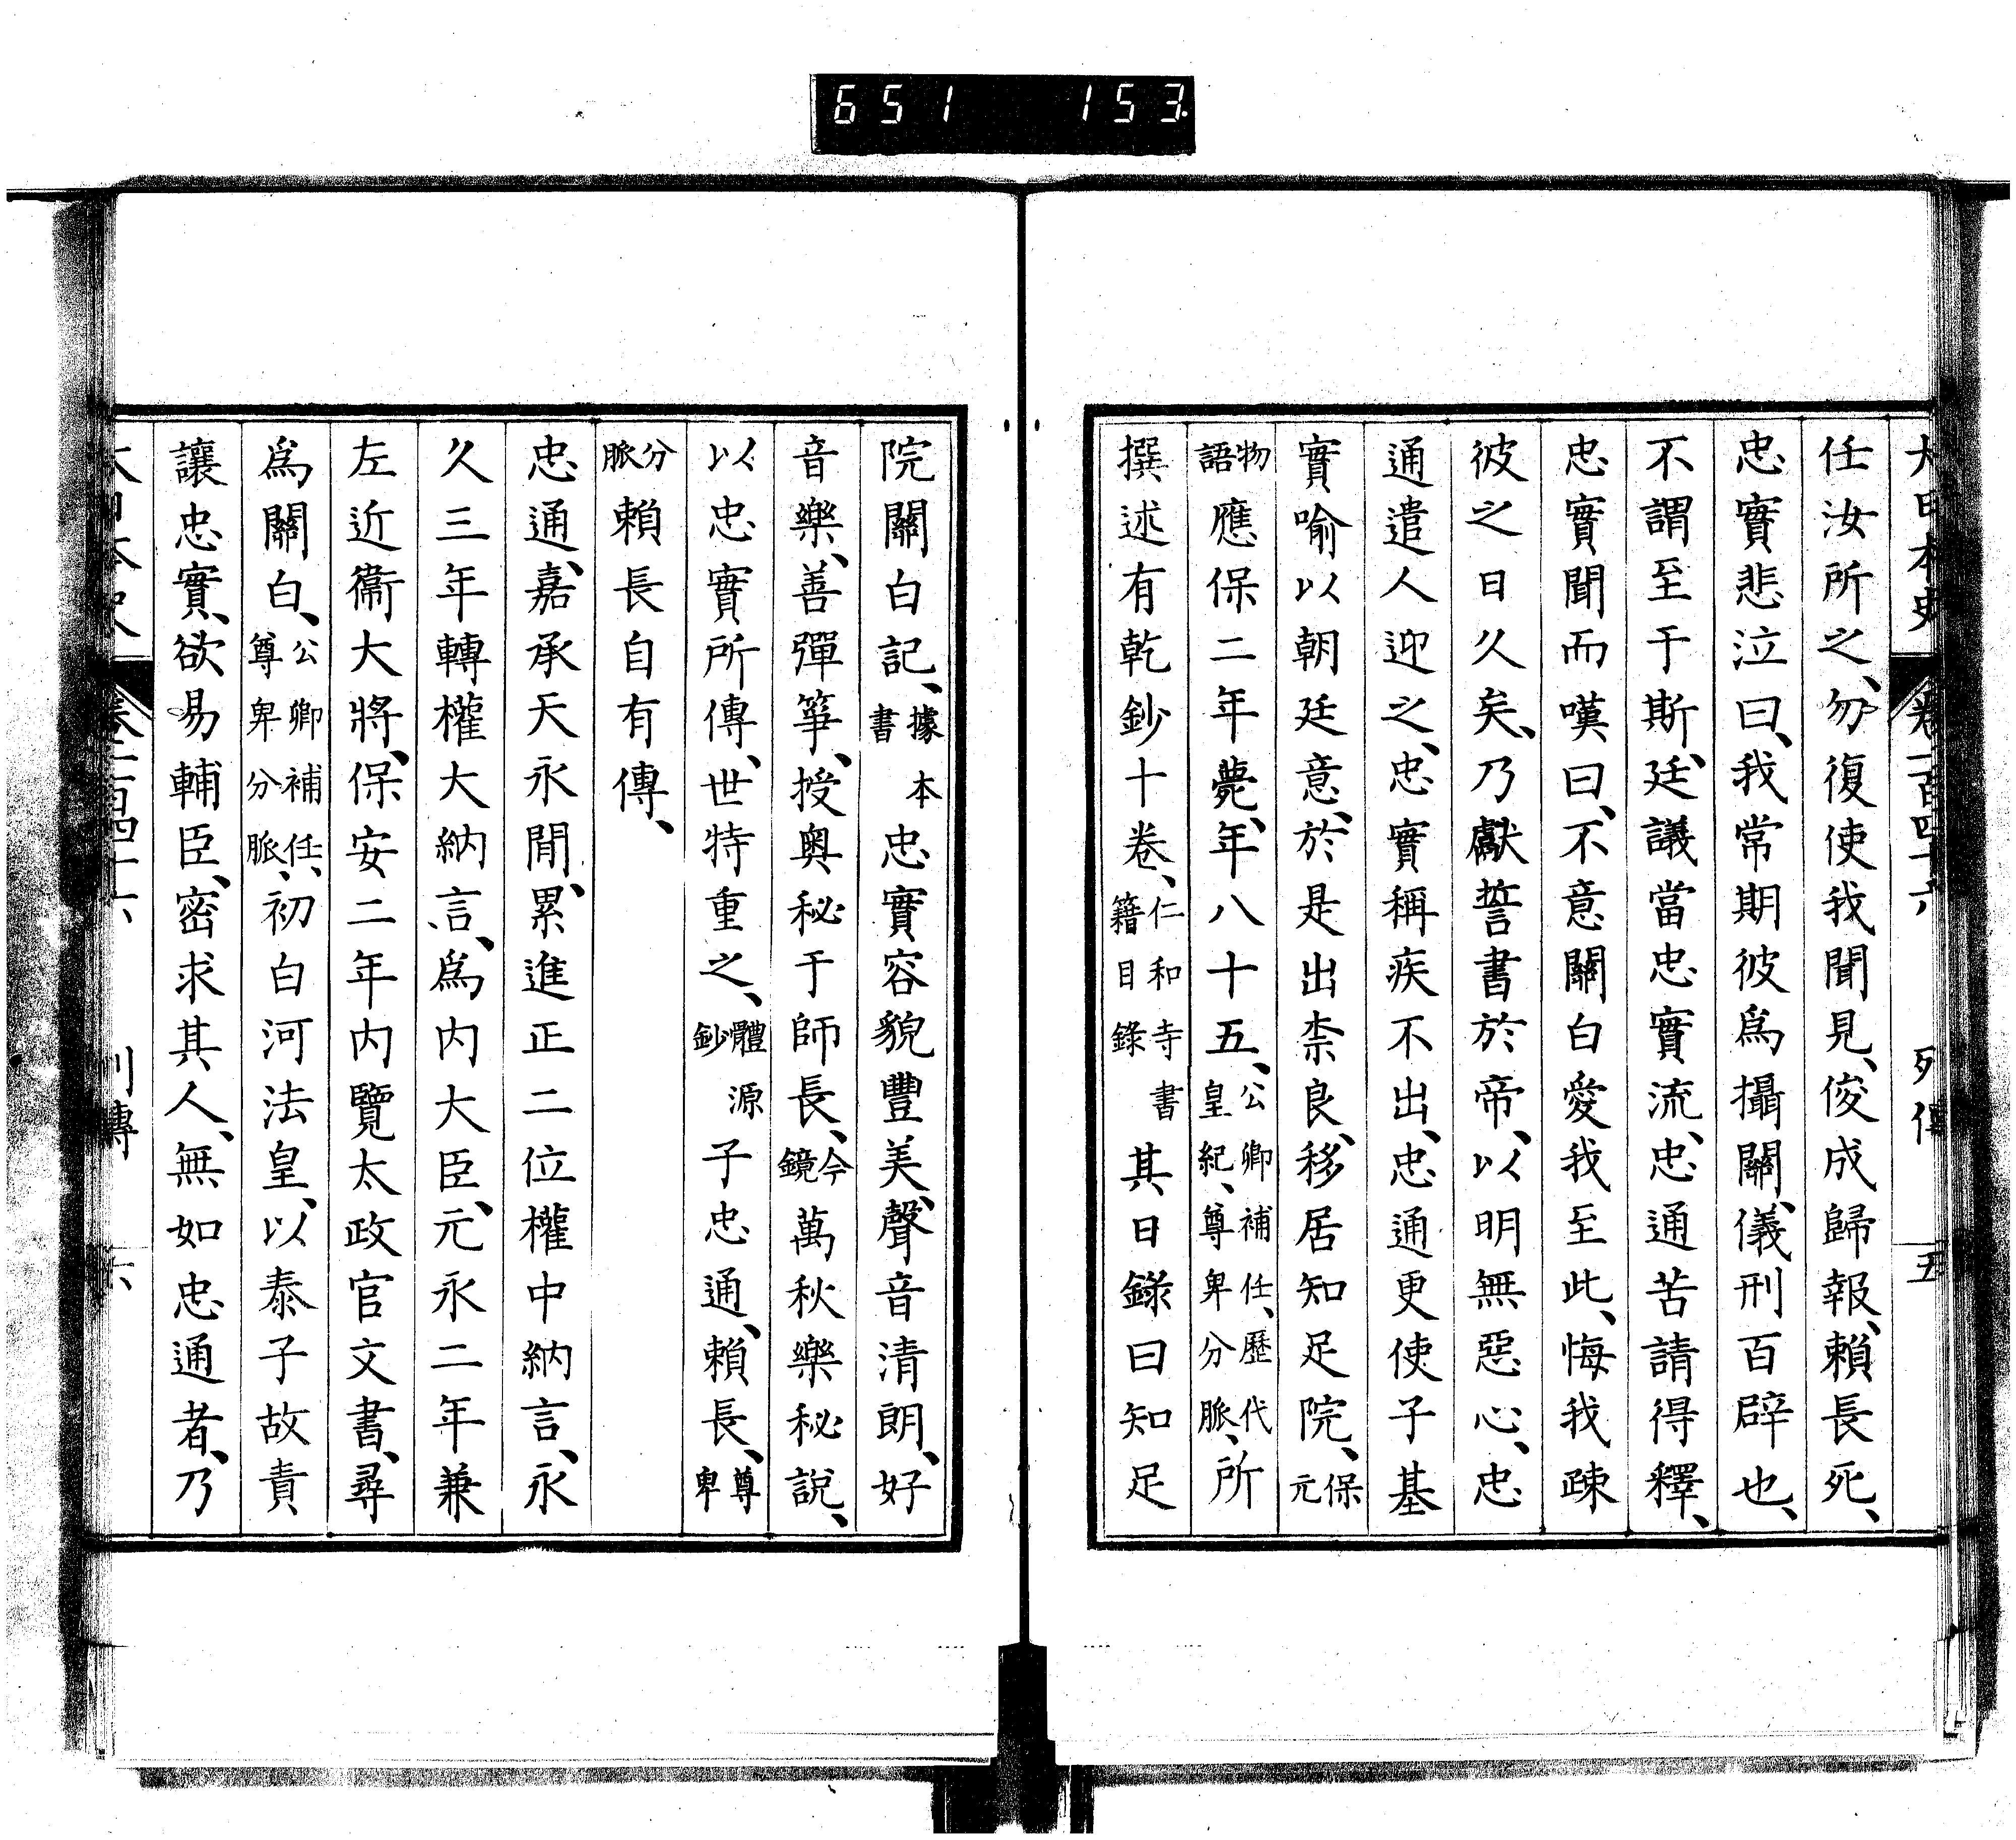 651 153
大日本史 卷一百四十六 列傳 五
任汝所之、勿復使我聞見、俊成歸報、賴長死、
忠實悲泣曰、我常期彼爲攝關、儀刑百辟也、
不謂至于斯、廷議當忠實流、忠通苦請得釋、
忠實聞而嘆曰、不意關白愛我至此、悔我疎
彼之日久矣、乃獻誓書於帝、以明無惡心、忠
通遣人迎之、忠實稱疾不出、忠通更使子基
實喻以朝廷意、於是出柰良、移居知足院、保元
物語應保二年薨、年八十五、公卿補任、歷代皇紀、尊卑分脈、所
撰述有乾鈔十卷、仁和寺書籍目錄其日錄曰知足
院關白記、據本書忠實容貌豐美、聲音清朗、好
音樂、善彈箏、授奥秘于師長、今鏡萬秋樂秘說、
以忠實所傳、世特重之、體源鈔子忠通、賴長、尊卑
分脈賴長自有傳、
忠通、嘉承天永間、累進正二位權中納言、永
久三年轉權大納言、爲内大臣、元永二年兼
左近衞大將、保安二年内覽太政官文書、尋
爲關白、公卿補任、尊卑分脈、初白河法皇、以泰子故責
讓忠實、欲易輔臣、密求其人、無如忠通者、乃
大日本史 卷一百四十六 列傳 六